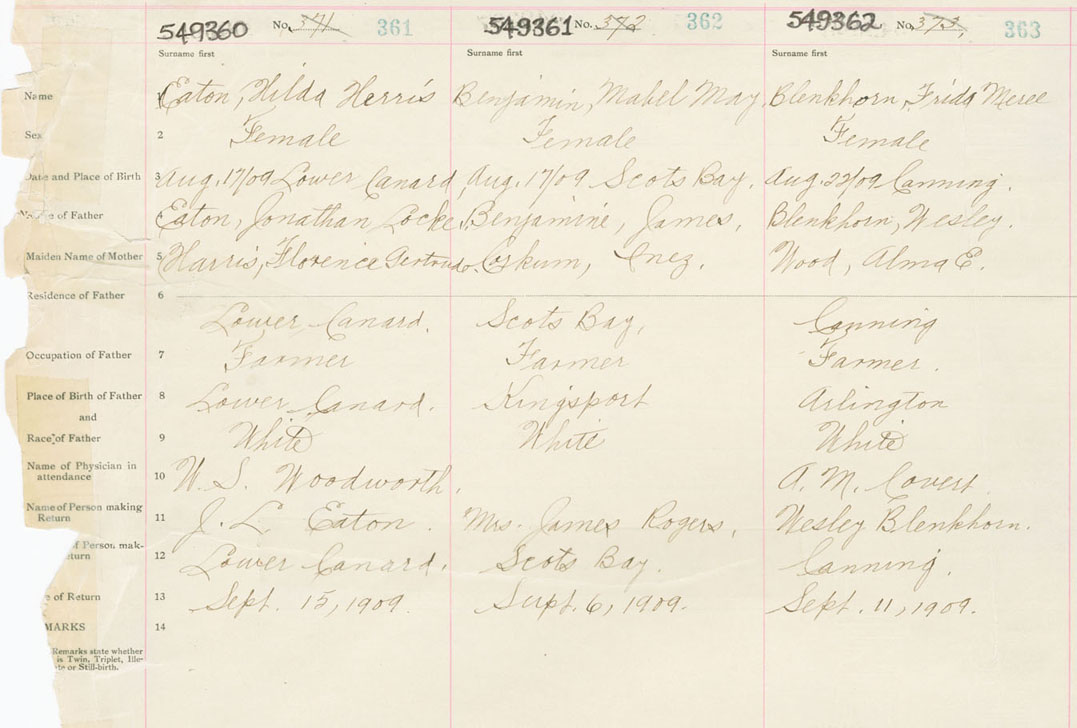 549360 No. 371 361 549361 No. 372 362 549362 No. 373 363
Surname first Surname first Surname first
Name 1 Eaton, Hilda Herris Benjamin, Mabel May, Blenkhorn, Frida
Sex 2 Female Female Female
Date and Place of Birth 3 Aug. 17/09 Lower Canard Aug. 17/09 Scots Bay. Aug. 22/09 Canning.
Name of Father 4 Eaton, Jonathan Locke Benjamine, James, Blenkhorn, Wesley.
Maiden Name of Mother 5 Harris, Florence Gertrude Coskum, Inez. Wood, Alma E.
Residence of Father 6
Lower Canard. Scots Bay, Canning
Occupation of Father 7 Farmer Farmer Farmer.
Place of Birth of Father 8 Lower Canard. Kingsport Arlington
and
Race of Father 9 White White White
Name of Physician in
attendance 10 W. S. Woodworth, A. M. Covert
Name of Person making
Return 11 J. L. Eaton. Mrs. James Rogers, Wesley Blenkhorn.
of Person mak-
turn 12 Lower Canard. Scots Bay. Canning.
e of Return 13 Sept. 15, 1909. Supt. 6, 1909. Sept. 11, 1909.
MARKS 14
Remarks state whether
is Twin, Triplet, Ille-
te or Still-birth.